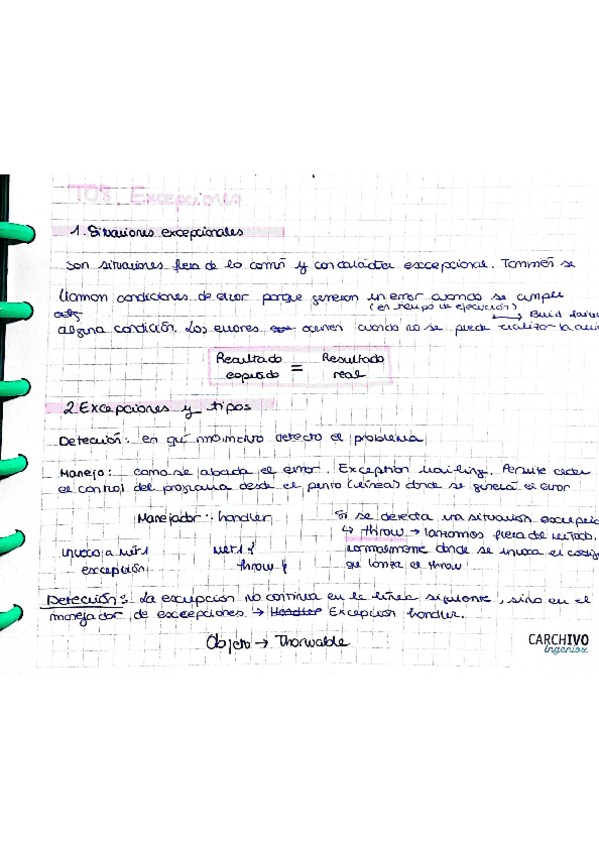 T08. Excepciones
1. Situaciones excepcionales
Son situaciones fuera de lo común y con carácter excepcional. También se
llaman condiciones de error porque generan un error cuando se cumple
(en tiempo de ejecución)
alguna condición. Los errores ocurren cuando no se puede realizar la
Resultado esperado = Resultado real
2. Excepciones y tipos
Detección: en qué momento detecto el problema
Manejo: como se aborda el error. Exception handling. Permite ceder
el control del programa desde el punto (líneas) donde se generó el error
Manejador: handler
Si se detecta una situación
↳ throw → lanzamos fuera del método,
normalmente donde se invoca el código
que lanza el throw
invoco a met1
excepción
met1 {
throw }
Detección: La excepción no continua en la línea siguiente, sino en el
manejador de excepciones → Handler Exception handler.
Objeto → Thorwable
CARCHIVO
Ingenios